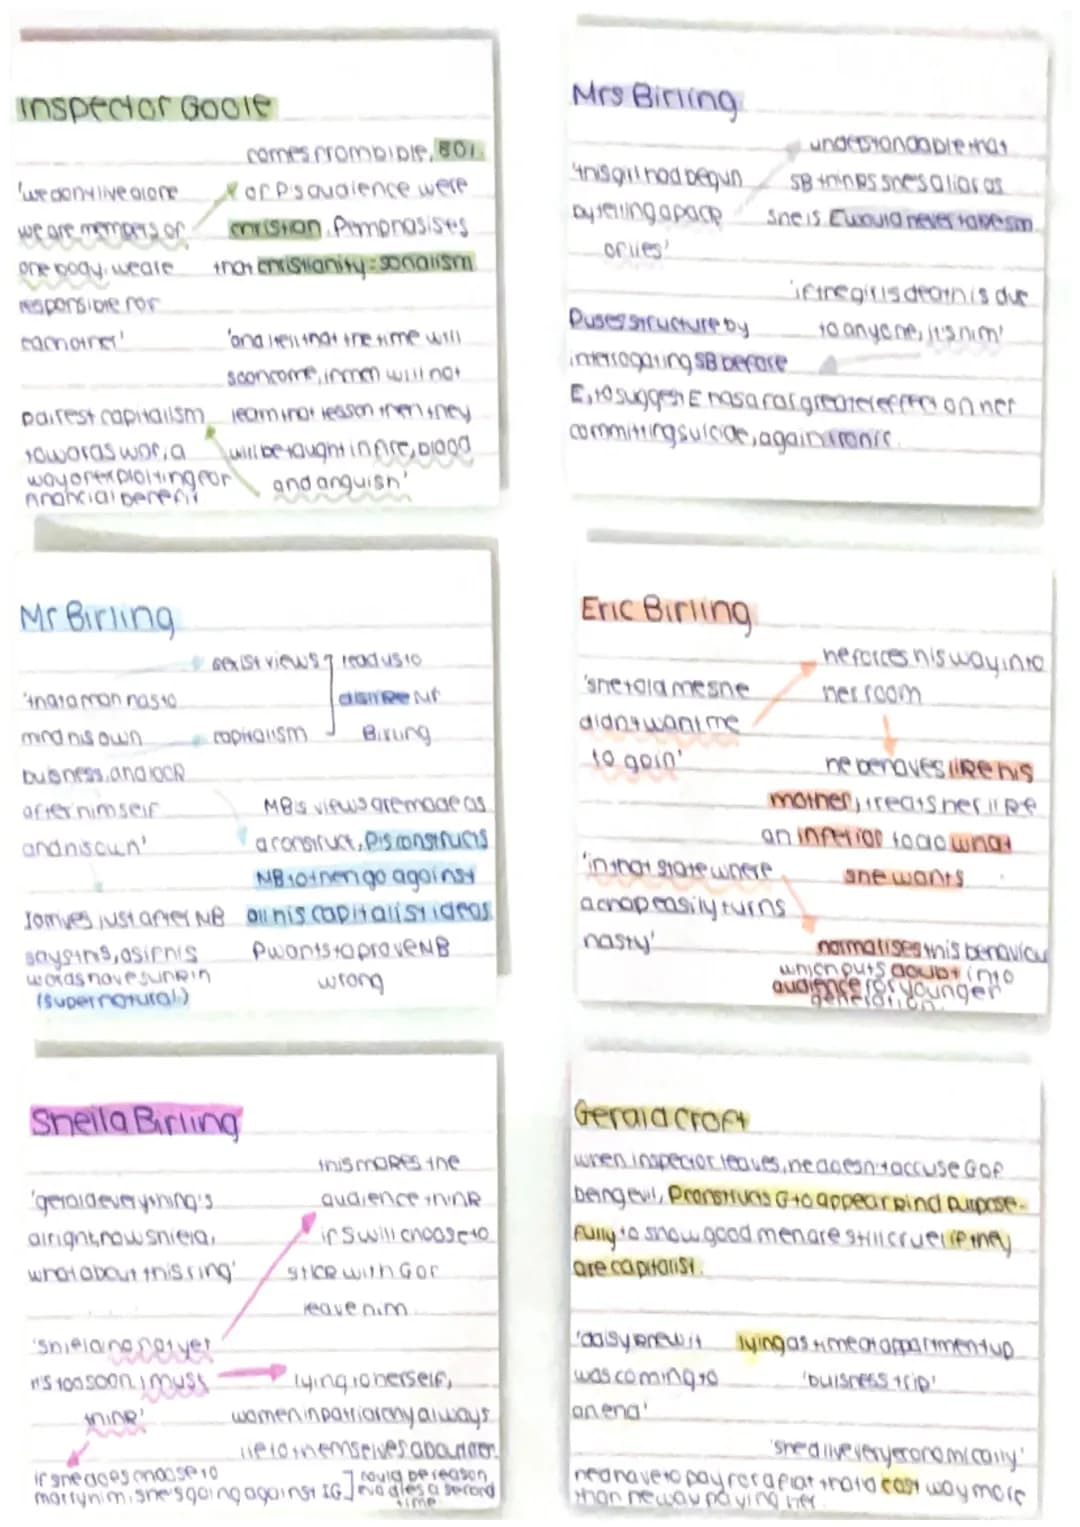 Inspector Goole
comes from bible, 80%
'we don't live alone
of P's audience were
we are members of
christian. P emphasists
one body. we are
that christianity = socialism
responsible for
each other'
'and i tell that the time will
soon come, if men will not
pairest capitalism
learn that lesson then they
towards war, a
will be taught in fire, blood
way of exploiting for
and anguish'
financial benefit
Mrs Birling
understandable that
'this girl had begun
SB thinks she's a liar as
by telling a pack
she is. E would never take sm
of lies'
'if the girl's death is due
P uses structure by
to anyone, it's him'
interrogating SB before
E, to suggest E has a far greater effect on her
committing suicide, again ironic.
Mr Birling
sexist views
lead us to
'that a man has to
dislike Mr
mind his own
capitalism
Birling
buisness, and look
after himself
MB's views are made as
and his own'
a construct, P's constructs
MB to then go against
IG arrives just after MB
all his capitalist ideas
says this, as if his
P wants to prove MB
words have sunk in
wrong
(supernatural)
Eric Birling
he forces his way into
'she told me she
her room
didn't want me
to go in'
he behaves like his
mother, treats her like
an inferior to do what
'in that state where
she wants
a chap easily turns
nasty'
normalises this behaviou
which puts doubt into
audience for younger
generation.
Sheila Birling
this makes the
'gerald everything's
audience think
alright now shiela,
if S will choose to
what about this ring'
stick with G or
leave him
'shiela no not yet
it's too soon, i muss
lying to herself,
think'
women in patriarchy always
lie to themselves about men
if she does choose to
marry him, she's going against IG
could be reason
eva dies a second
time
Gerald Croft
when inspector leaves, he doesn't accuse G of
being evil, P constructs G to appear kind purpose-
fully to show good men are still cruel if they
are capitalist.
'daisy knew it
lying as time at appartment up
was coming to
'buisness trip'
an end'
'she'd live very economically'
he'd have to pay for a flat that'd cost way more
than he was paying her.